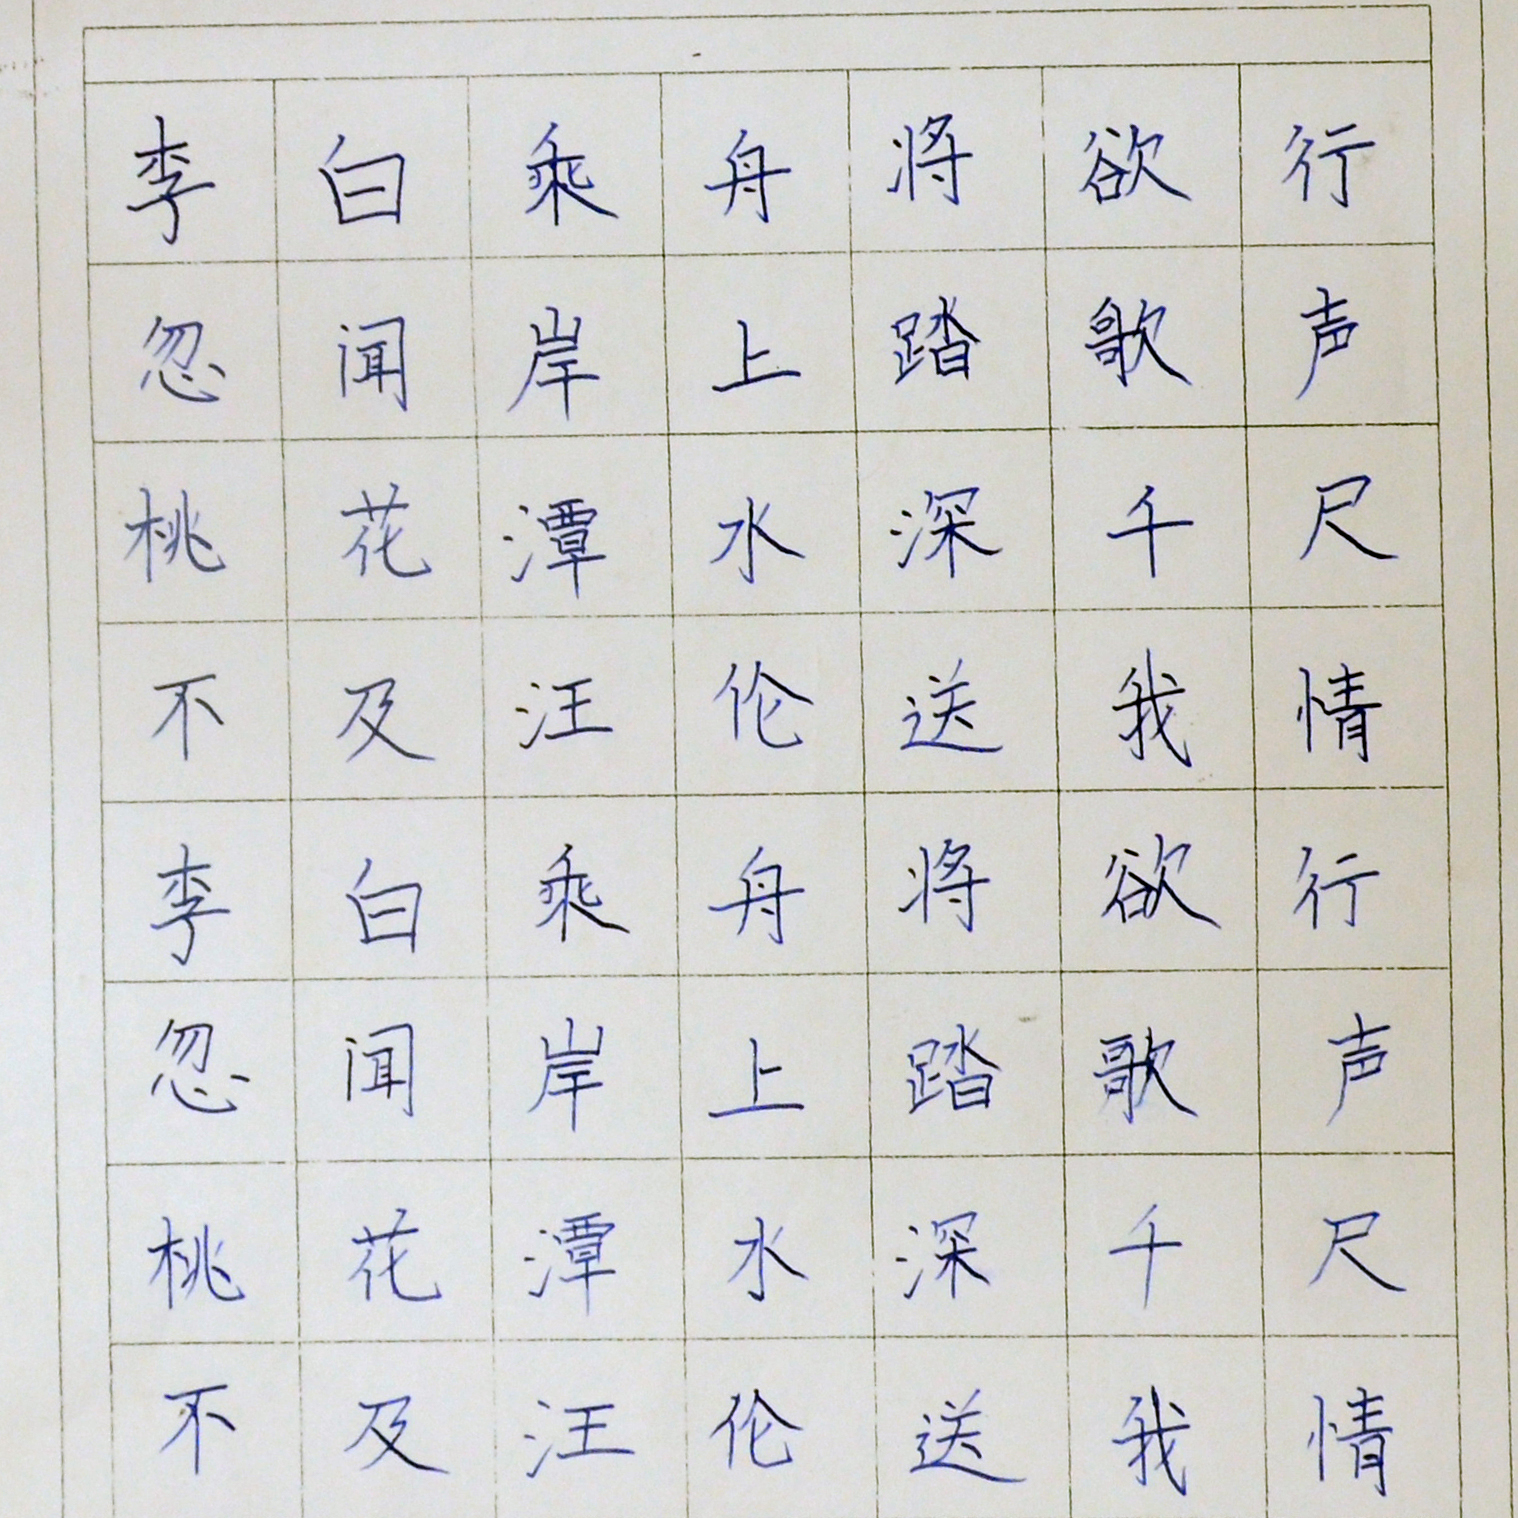 李白乘舟将欲行
忽闻岸上踏歌声
桃花潭水深千尺
不及汪伦送我情
李白乘舟将欲行
忽闻岸上踏歌声
桃花潭水深千尺
不及汪伦送我情